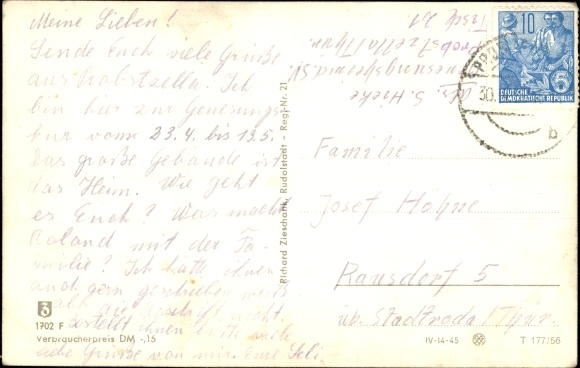 Meine Lieben!
Sende Euch viele Grüße
aus Probstzella. Ich
bin hier zur Genesungs
kur vom 23.4. bis 13.5.
Das große Gebäude ist
das Heim. Wie geht
es Euch? Was macht
Roland mit der Fa-
milie? Ich hätte ihnen
auch gern geschrieben weiß
aber die nicht.
Bestellt ihnen bitte auch
Grüße von mir. Eure
1702 F
Verbraucherpreis DM -,15
Richard Zieschank, Rudolstadt - Regi-Nr. 21
Abs. S.
Genesungsheim
Probstzella/Thür.
10
DEUTSCHE
DEMOKRATISCHE REPUBLIK
30.
b
Familie
Josef Höhne
Rausdorf 5
üb. Stadtroda/Thür.
IV-14-45
T 177/56